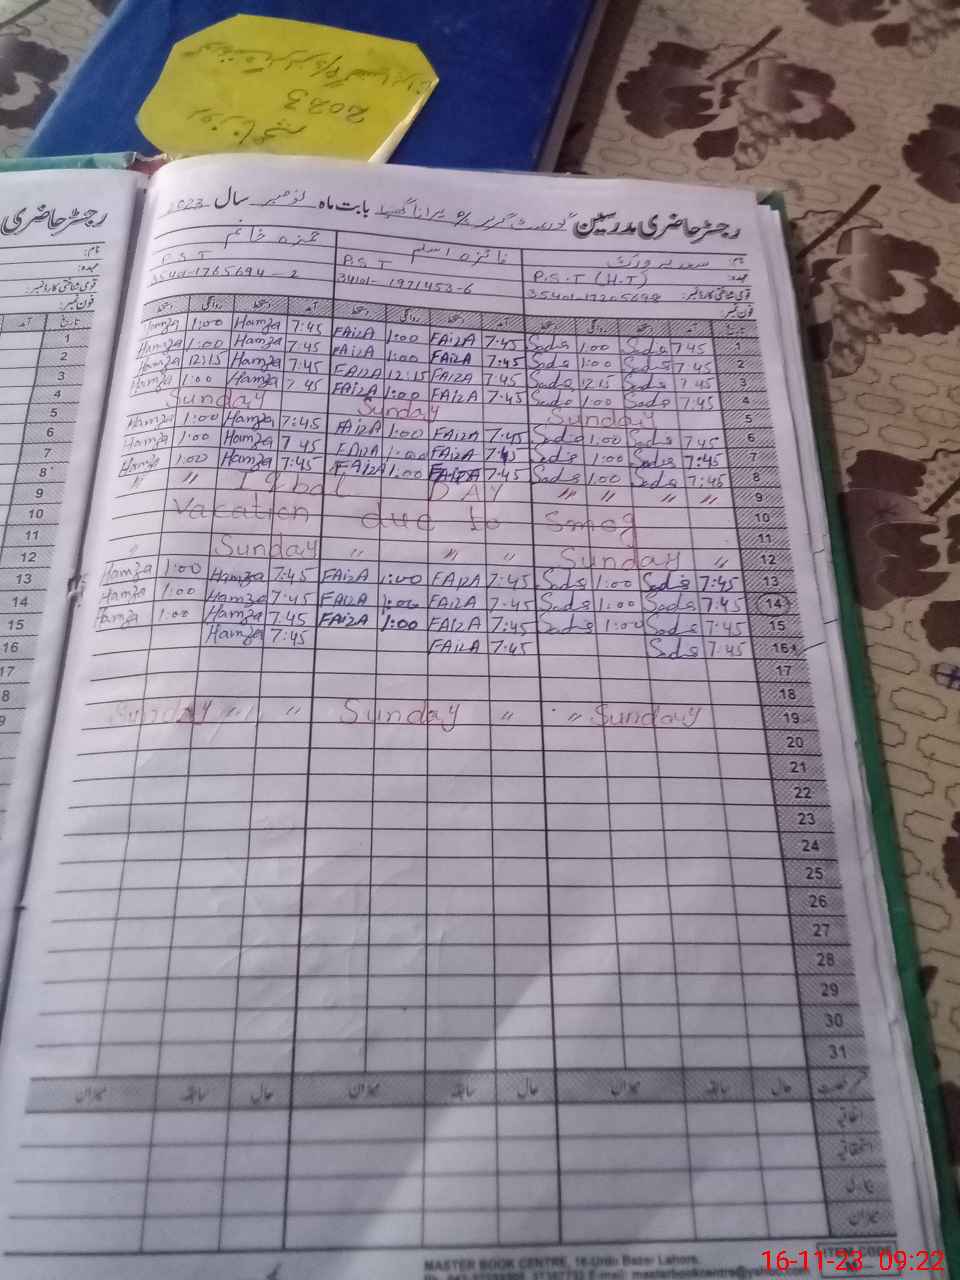 روزنامچہ
2023
رجسٹر حاضری
نام:
عہدہ:
قومی شناختی کارڈ نمبر:
فون نمبر:
رجسٹر حاضری مدرسین بابت ماہ نومبر سال 2023
نام: سعدیہ فائزہ اسلم حمزہ خانم
عہدہ: P.S.T (H.T) P.S.T P.S.T
قومی شناختی کارڈ نمبر: 34101-1971453-6
فون نمبر:
تاریخ آمد دستخط روانگی دستخط آمد دستخط روانگی دستخط آمد دستخط روانگی دستخط
Hamza 1:00 Hamza 7:45 FAIZA 1:00 FAIZA 7:45 Sads 1:00 Sads 7:45 1
Hamza 1:00 Hamza 7:45 FAIZA 1:00 FAIZA 7:45 Sads 1:00 Sads 7:45 2
Hamza 12:15 Hamza 7:45 FAIZA 12:15 FAIZA 7:45 Sads 12:15 Sads 7:45 3
Hamza 1:00 Hamza 7:45 FAIZA 1:00 FAIZA 7:45 Sads 1:00 Sads 7:45 4
Sunday Sunday Sunday 5
Hamza 1:00 Hamza 7:45 FAIZA 1:00 FAIZA 7:45 Sads 1:00 Sads 7:45 6
Hamza 1:00 Hamza 7:45 FAIZA 1:00 FAIZA 7:45 Sads 1:00 Sads 7:45 7
Hamza 1:00 Hamza 7:45 FAIZA 1:00 FAIZA 7:45 Sads 1:00 Sads 7:45 8
" " Iqbal DAY " " " " 9
Vacation due to Smog 10
11
" Sunday " " " Sunday " 12
Hamza 1:00 Hamza 7:45 FAIZA 1:00 FAIZA 7:45 Sads 1:00 Sads 7:45 13
Hamza 1:00 Hamza 7:45 FAIZA 1:00 FAIZA 7:45 Sads 1:00 Sads 7:45 14
Hamza 1:00 Hamza 7:45 FAIZA 1:00 FAIZA 7:45 Sads 1:00 Sads 7:45 15
Hamza 7:45 FAIZA 7:45 Sads 7:45 16
17
18
Sunday " " Sunday " " Sunday 19
20
21
22
23
24
25
26
27
28
29
30
31
قسم رخصت حال سابقہ میزان حال سابقہ میزان حال سابقہ میزان
اتفاقیہ
استحقاقیہ
میزان
MASTER BOOK CENTRE, 16-Urdu Bazar Lahore.
ITEM CODE
16-11-23 09:22